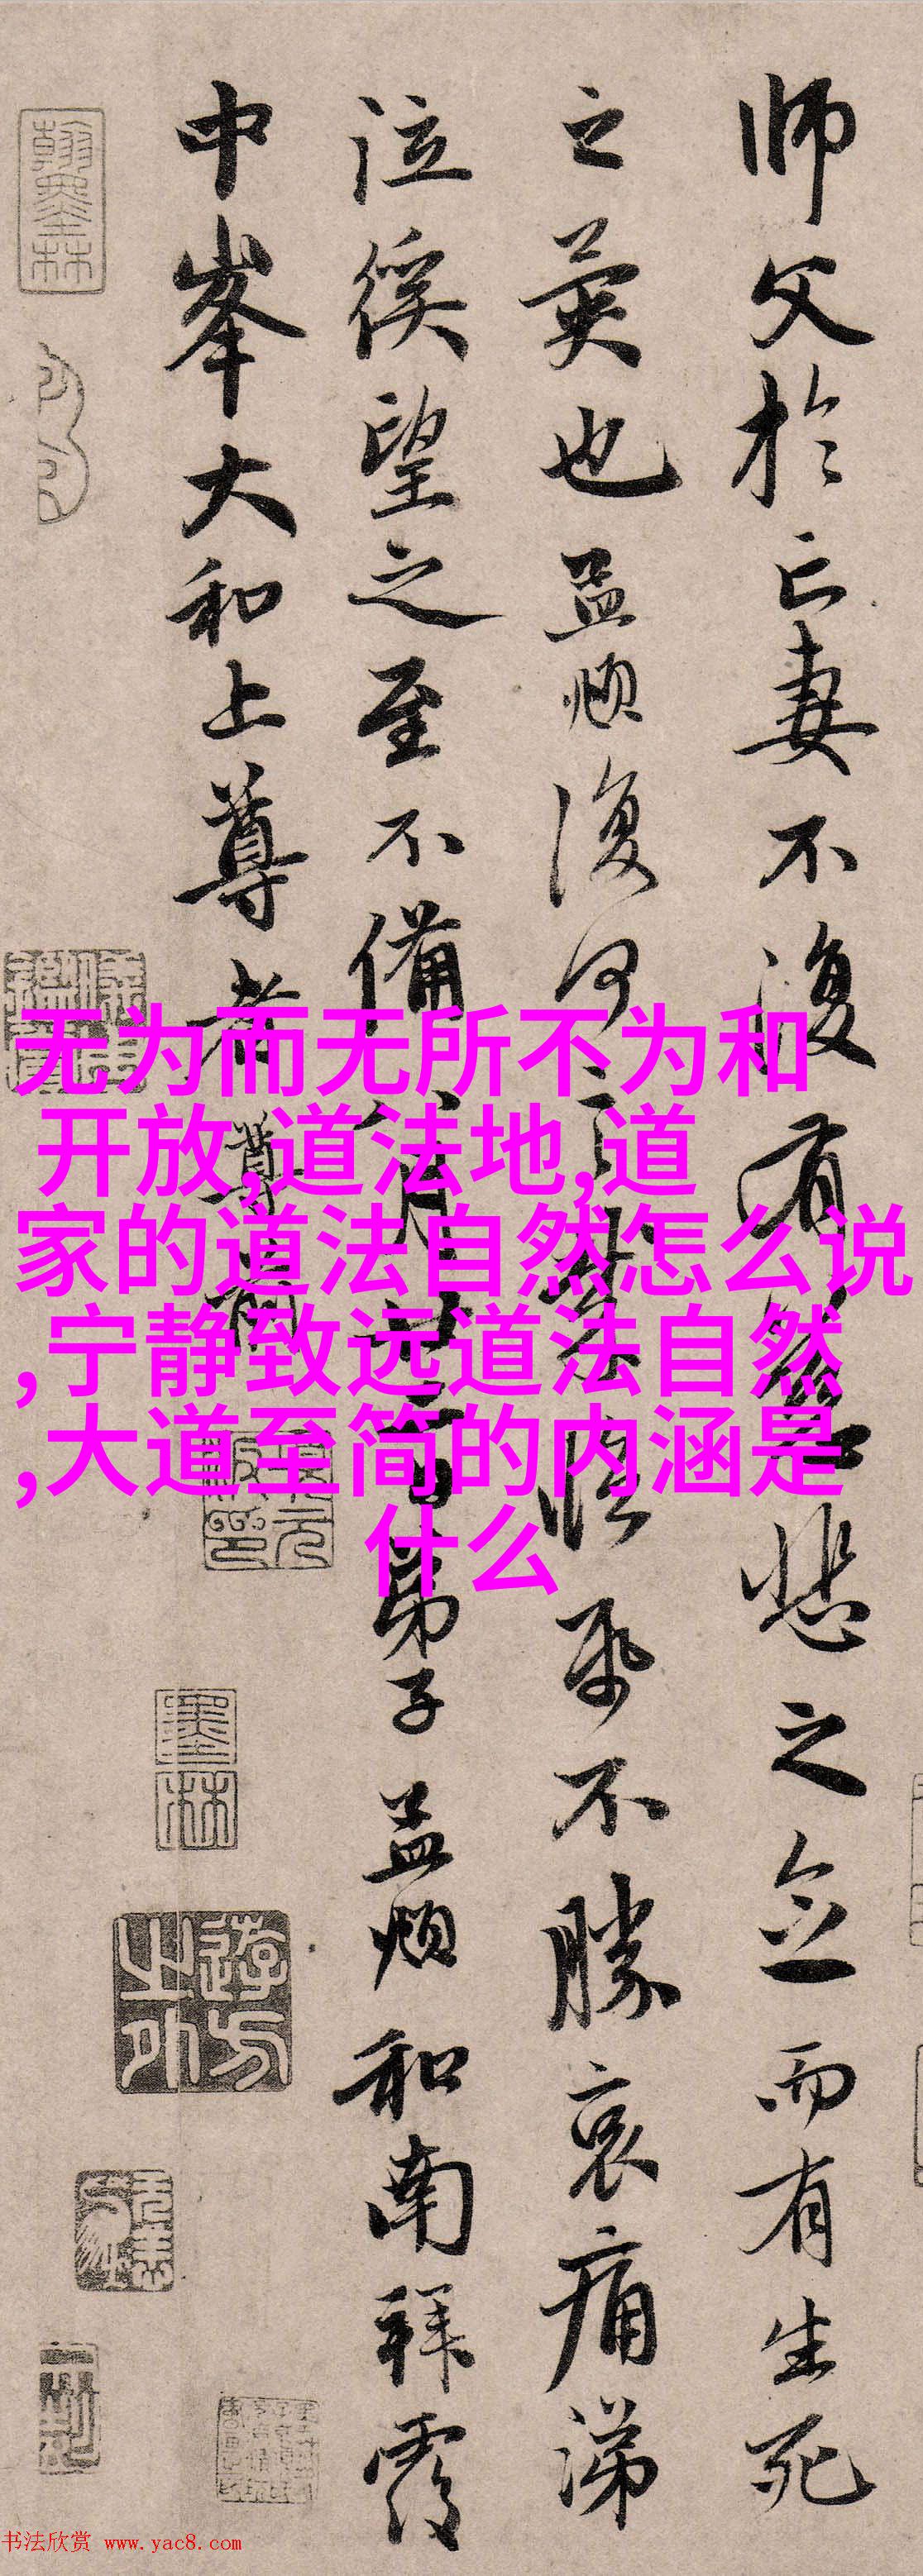 师父於亡妻不復有忽悲之念而有生死
之異也孟頫復何言哉臨紙不勝哀痛涕
泣徯望之至不備 月廿三日弟子孟頫和南拜覆
中峯大和上尊者 尊前
无为而无所不为和
开放,道法地,道
家的道法自然怎么说
,宁静致远道法自然
,大道至简的内涵是
什么
翰墨林
墨林
遊方之外
书法欣赏 www.yac8.com